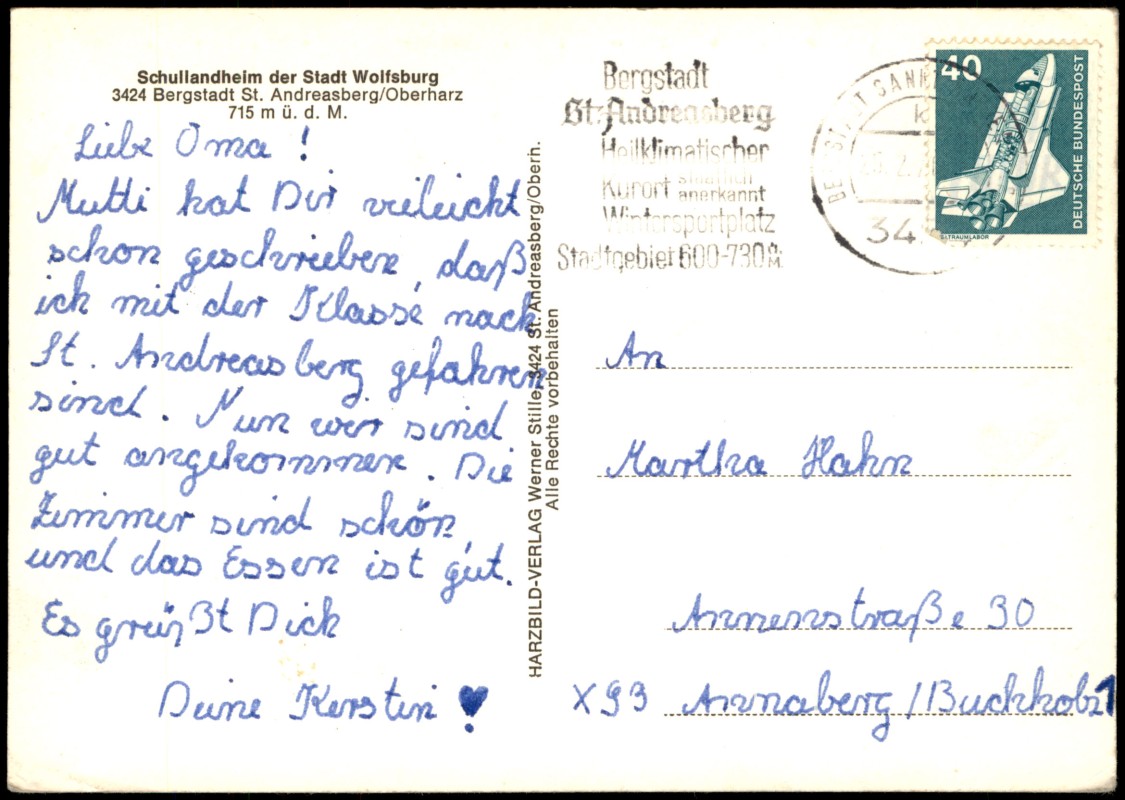 Schullandheim der Stadt Wolfsburg
3424 Bergstadt St. Andreasberg/Oberharz
715 m ü. d. M.
Liebe Oma !
Mutti hat Dir vieleicht
schon geschrieben, daß
ich mit der Klasse nach
St. Andreasberg gefahren
sind. Nun wir sind
gut angekommen. Die
Zimmer sind schön,
und das Essen ist gut.
Es grüßt Dich
Deine Kerstin
HARZBILD-VERLAG Werner Stille, 3424 St. Andreasberg/Obern.
Alle Rechte vorbehalten
Bergstadt
St. Andreasberg
Heilklimatischer
Kurort staatlich
anerkannt
Wintersportplatz
Stadtgebiet 600-730 m
ü.M.
BERGSTADT SANKT
34
40
DEUTSCHE BUNDESPOST
An
Martha Hahn
Annenstraße 30
X93 Annaberg/Buchholz 1